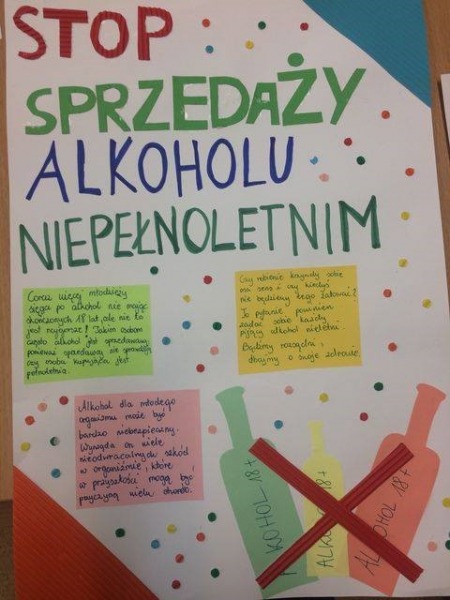 STOP
SPRZEDAŻY
ALKOHOLU
NIEPEŁNOLETNIM
Coraz więcej młodzieży
sięga po alkohol nie mając
skończonych 18 lat, ale nie to
jest najgorsze! Takim osobom
często alkohol jest sprzedawany,
ponieważ sprzedawcy nie sprawdzają
czy osoba kupująca jest
pełnoletnia.
Czy robienie krzywdy sobie
ma sens i czy kiedyś
nie będziemy tego żałować?
To pytanie powinien
zadać sobie każdy
pijący alkohol nieletni.
Bądźmy rozsądni,
dbajmy o swoje zdrowie.
Alkohol dla młodego
organizmu może być
bardzo niebezpieczny.
Wyrządza on wiele
nieodwracalnych szkód
w organizmie, które
w przyszłości mogą być
przyczyną wielu chorób.
ALKOHOL 18+
ALKOHOL 18+
ALKOHOL 18+